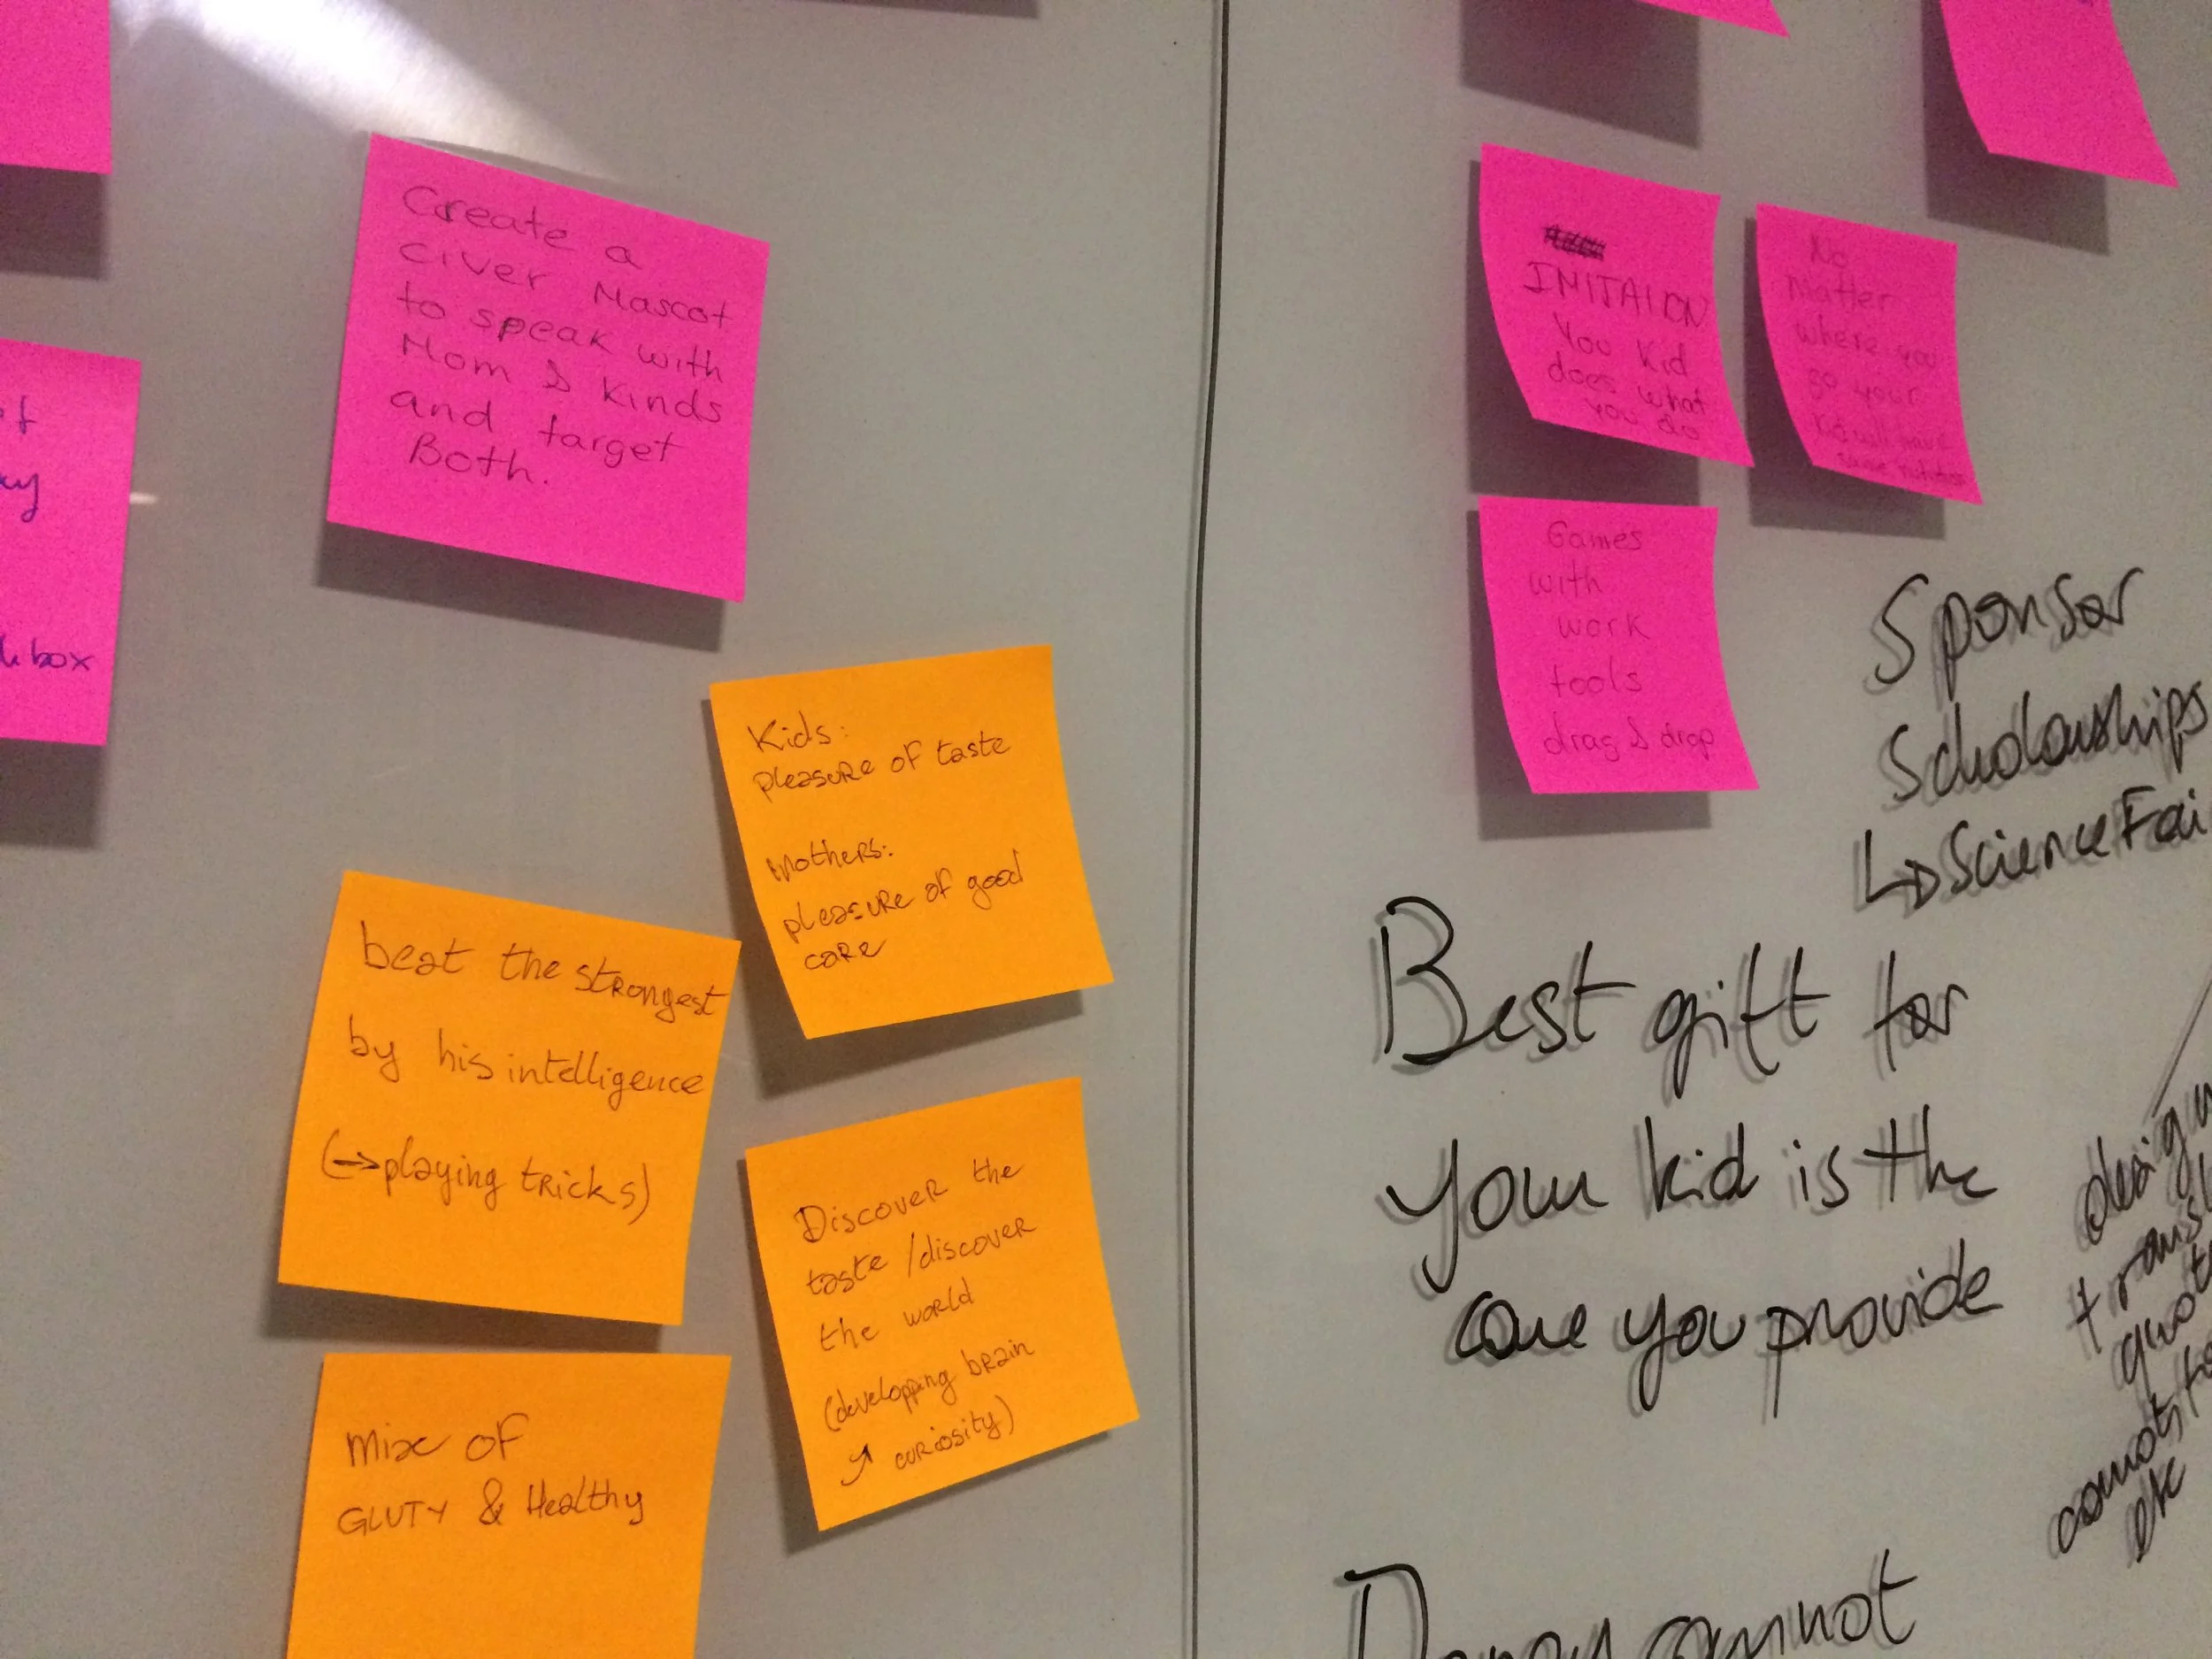 Create a
Civer Mascot
to speak with
Mom & Kinds
and target
Both.
box
Kids:
pleasure of taste
Mothers:
pleasure of good
care
beat the strongest
by his intelligence
(→playing tricks)
Discover the
taste / discover
the world
(developping brain
↗ curiosity)
Mix of
GLUTY & Healthy
IMITAION
You Kid
does what
you do
No
Matter
where you
go your
Kid will have
same nutrition
Games
with
work
tools
drag & drop
Sponsor
Scholarships
↳ Science Fai
Best gift for
your kid is the
care you provide
cannot
etc